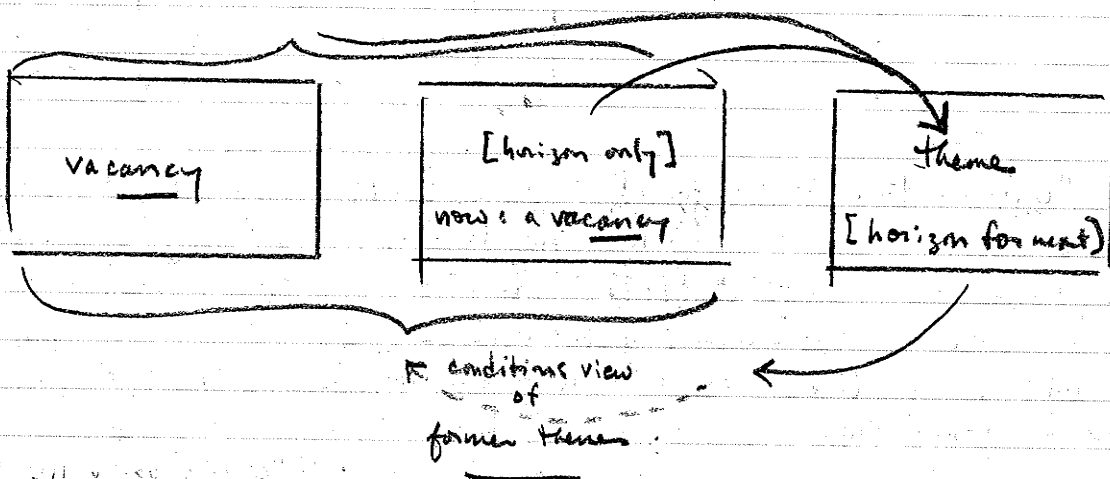 vacancy
[horizon only]
now: a vacancy
theme
[horizon for next]
conditions view
of
former themes.